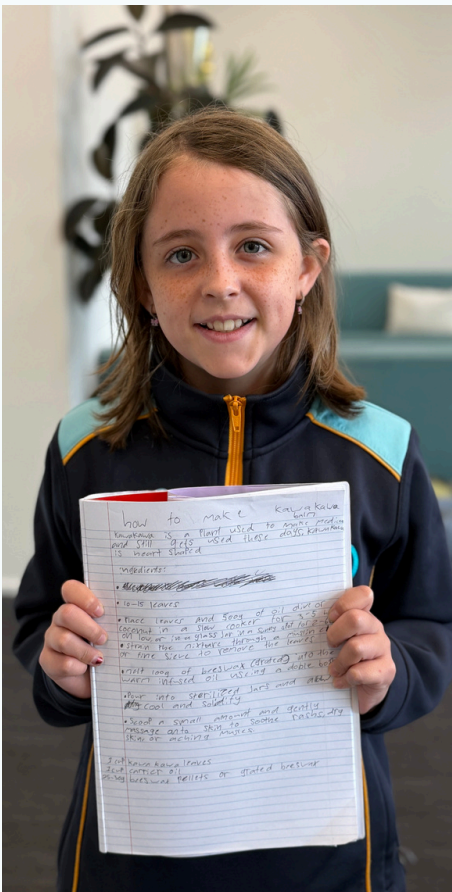 how to make kawakawa
balm
kawakawa is a Plant used to make medi
and still gets used these days kawakawa
is heart shaped
ingredients:
• 10-15 leaves
• Place leaves and 500g of oil
coconut in a slow cooker for
on low or in a glass jar in a sunny
• Strain the mixture through a
a fine sieve to remove the
• melt 100g of breswax (grated) into the
warm infused oil using a doble
• Pour into sterilized jars and
cool and solidify
• Scoop a small amount and gently
massage onto skin to soothe rashs, dry
skin or aching
kawakawa leaves
carrier oil
breswax Pellets or grated breswax